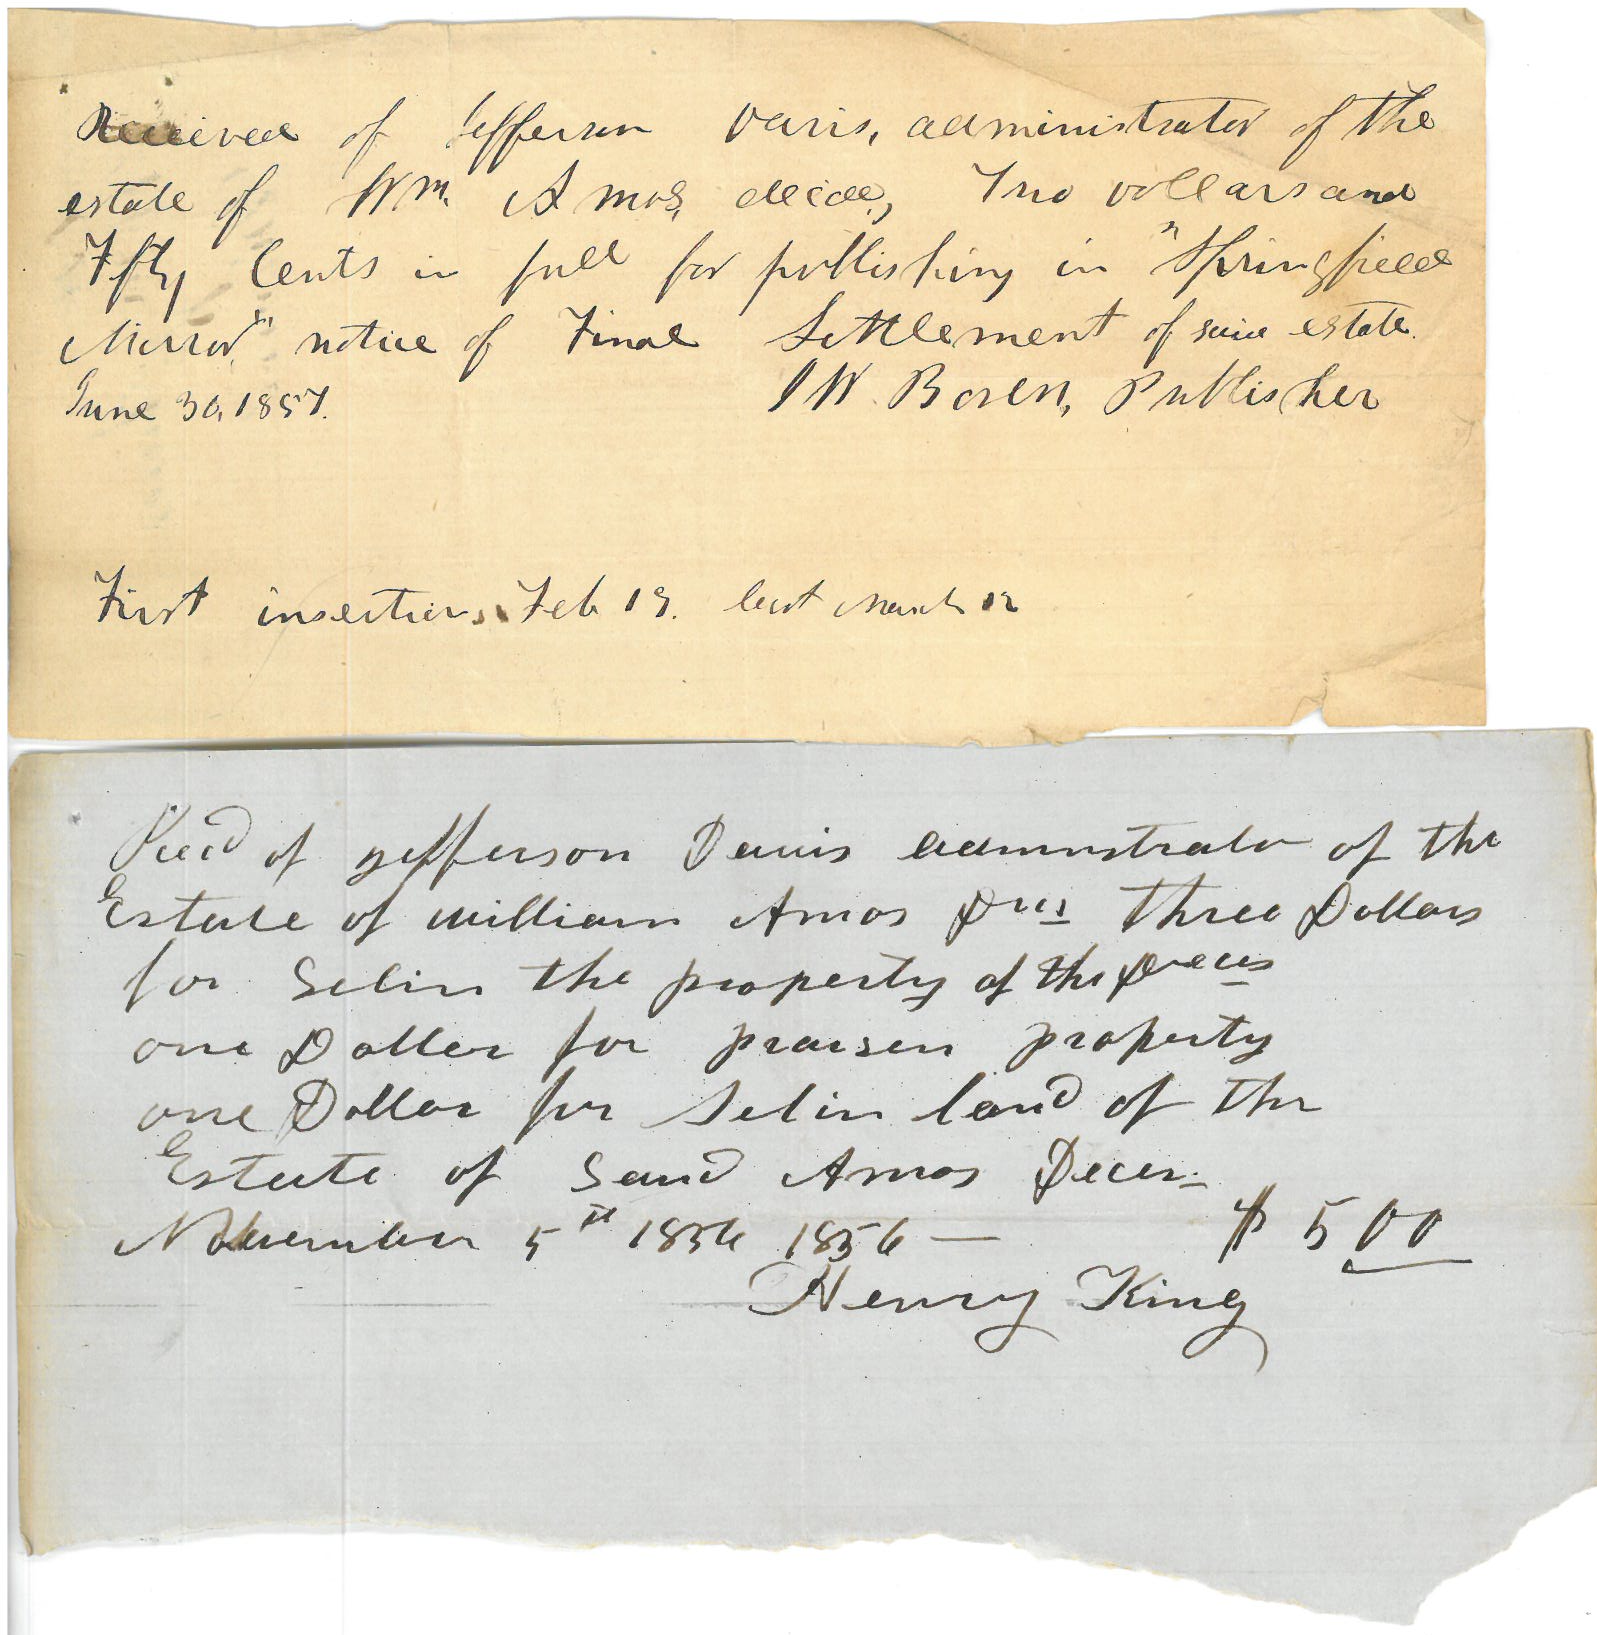 Received of Jefferson Davis, administrator of the
estate of Wm. Amos, decd., Two dollars and
Fifty Cents in full for publishing in "Springfield
Mirror," notice of Final Settlement of said estate.
June 30, 1857. J W. Boren, Publisher
First insertion, Feb 19. last March 12
Recd of Jefferson Davis admnistrator of the
Estate of William Amos Three Dollars
for Selin the property of the Deces
one Doller for praisen property
one Dollar for Selin land of the
Estate of Saud Amos Deces
November 5th 1856 1856 — $ 5 00
Henry King